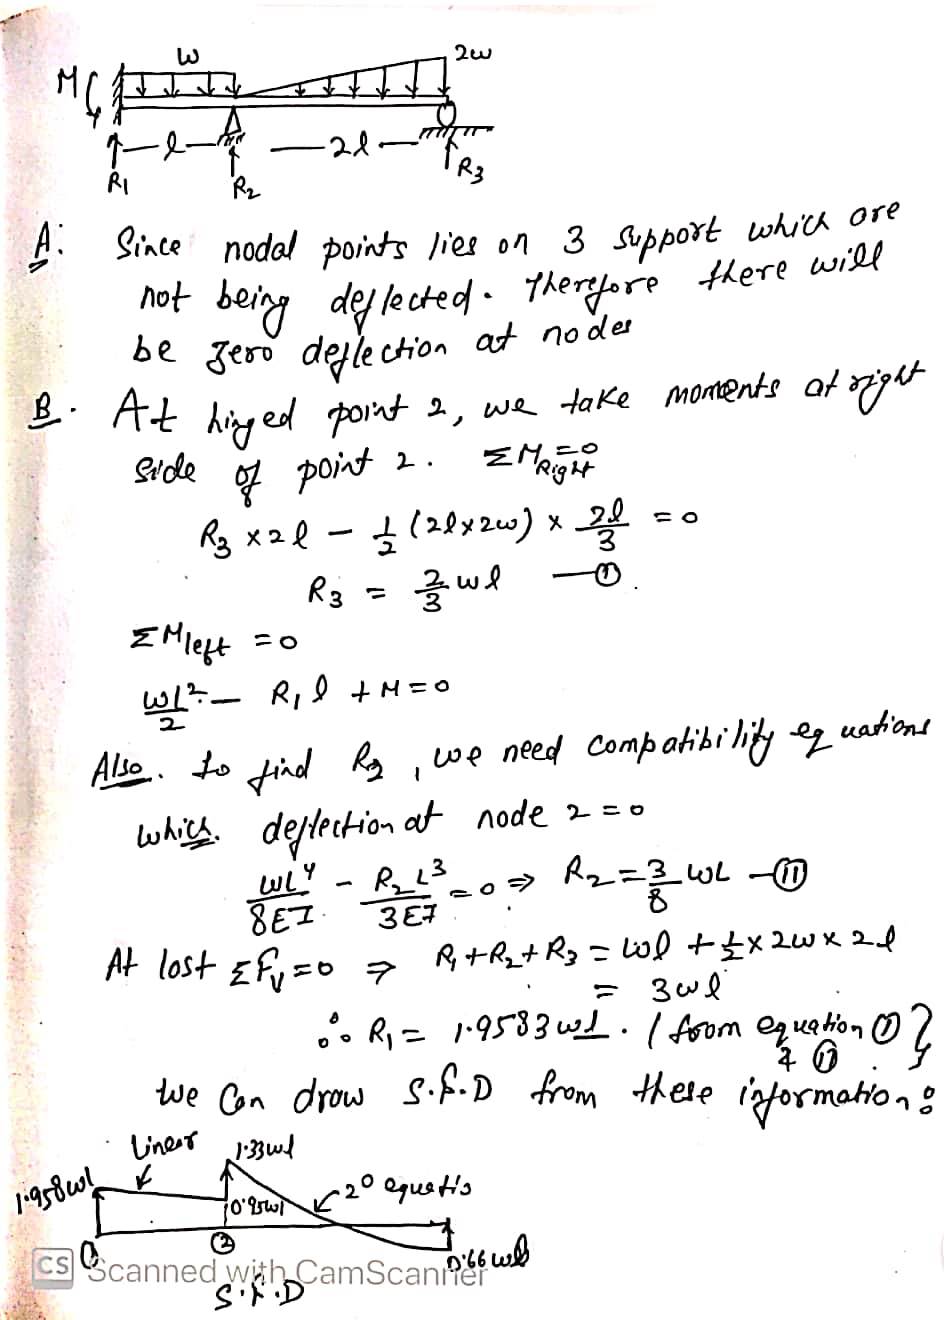 w 2w
M
l 2l
R1 R2 R3
A: Since nodal points lies on 3 support which are
not being deflected. Therefore there will
be zero deflection at nodes
B. At hinged point 2, we take moments at right
side of point 2. ΣM_Right = 0
R3 × 2l − 1/2 (2l × 2w) × 2l/3 = 0
R3 = 2/3 wl — ①.
ΣMleft = 0
wl²/2 − R1 l + M = 0
Also. to find R2, we need compatibility equations
which. deflection at node 2 = 0
WL⁴/8EI − R2L³/3EI = 0 ⇒ R2 = 3/8 WL — ⑪
At last ΣFv = 0 ⇒ R1 + R2 + R3 = wl + 1/2 × 2w × 2l
= 3wl
∴ R1 = 1.9583 wl. (from equation ① & ⑪ }
We Can draw S.F.D from these information:
Linear 1.33wl
1.958wl 2° equatio
0.95wl
② 0.66 wl
CS Scanned with CamScanner
S.F.D